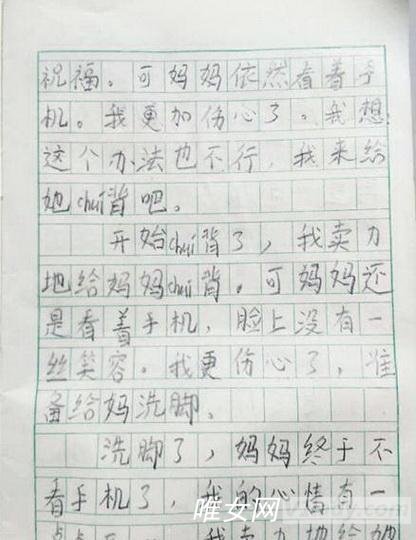 祝福。可妈妈依然看着手
机。我更加伤心了。我想
这个办法也不行，我来给
她chuí背吧。
开始chuí背了，我卖力
地给妈妈chuí背。可妈妈还
是看着手机，脸上没有一
丝笑容。我更伤心了，准
备给妈洗脚。
洗脚了，妈妈终于不
看手机了，我的心情有一
唯女网